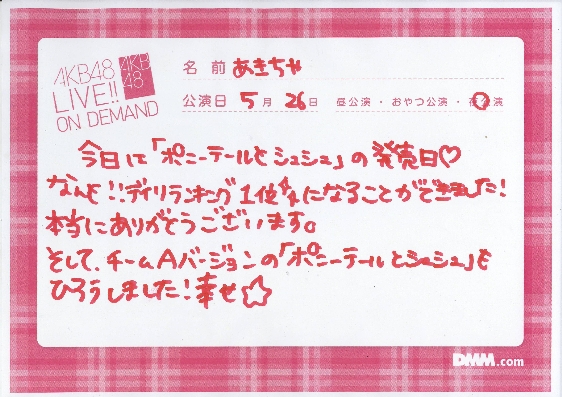 AKB48
LIVE!!
ON DEMAND
AKB
48
名前 あきちゃ
公演日 5月 26日 昼公演・おやつ公演・夜公演
今日は「ポニーテールとシュシュ」の発売日♡
なんと!!デイリランキング1位になることができました!
本当にありがとうございます。
そして、チームAバージョンの「ポニーテールとシュシュ」を
ひろうしました!幸せ☆
DMM.com